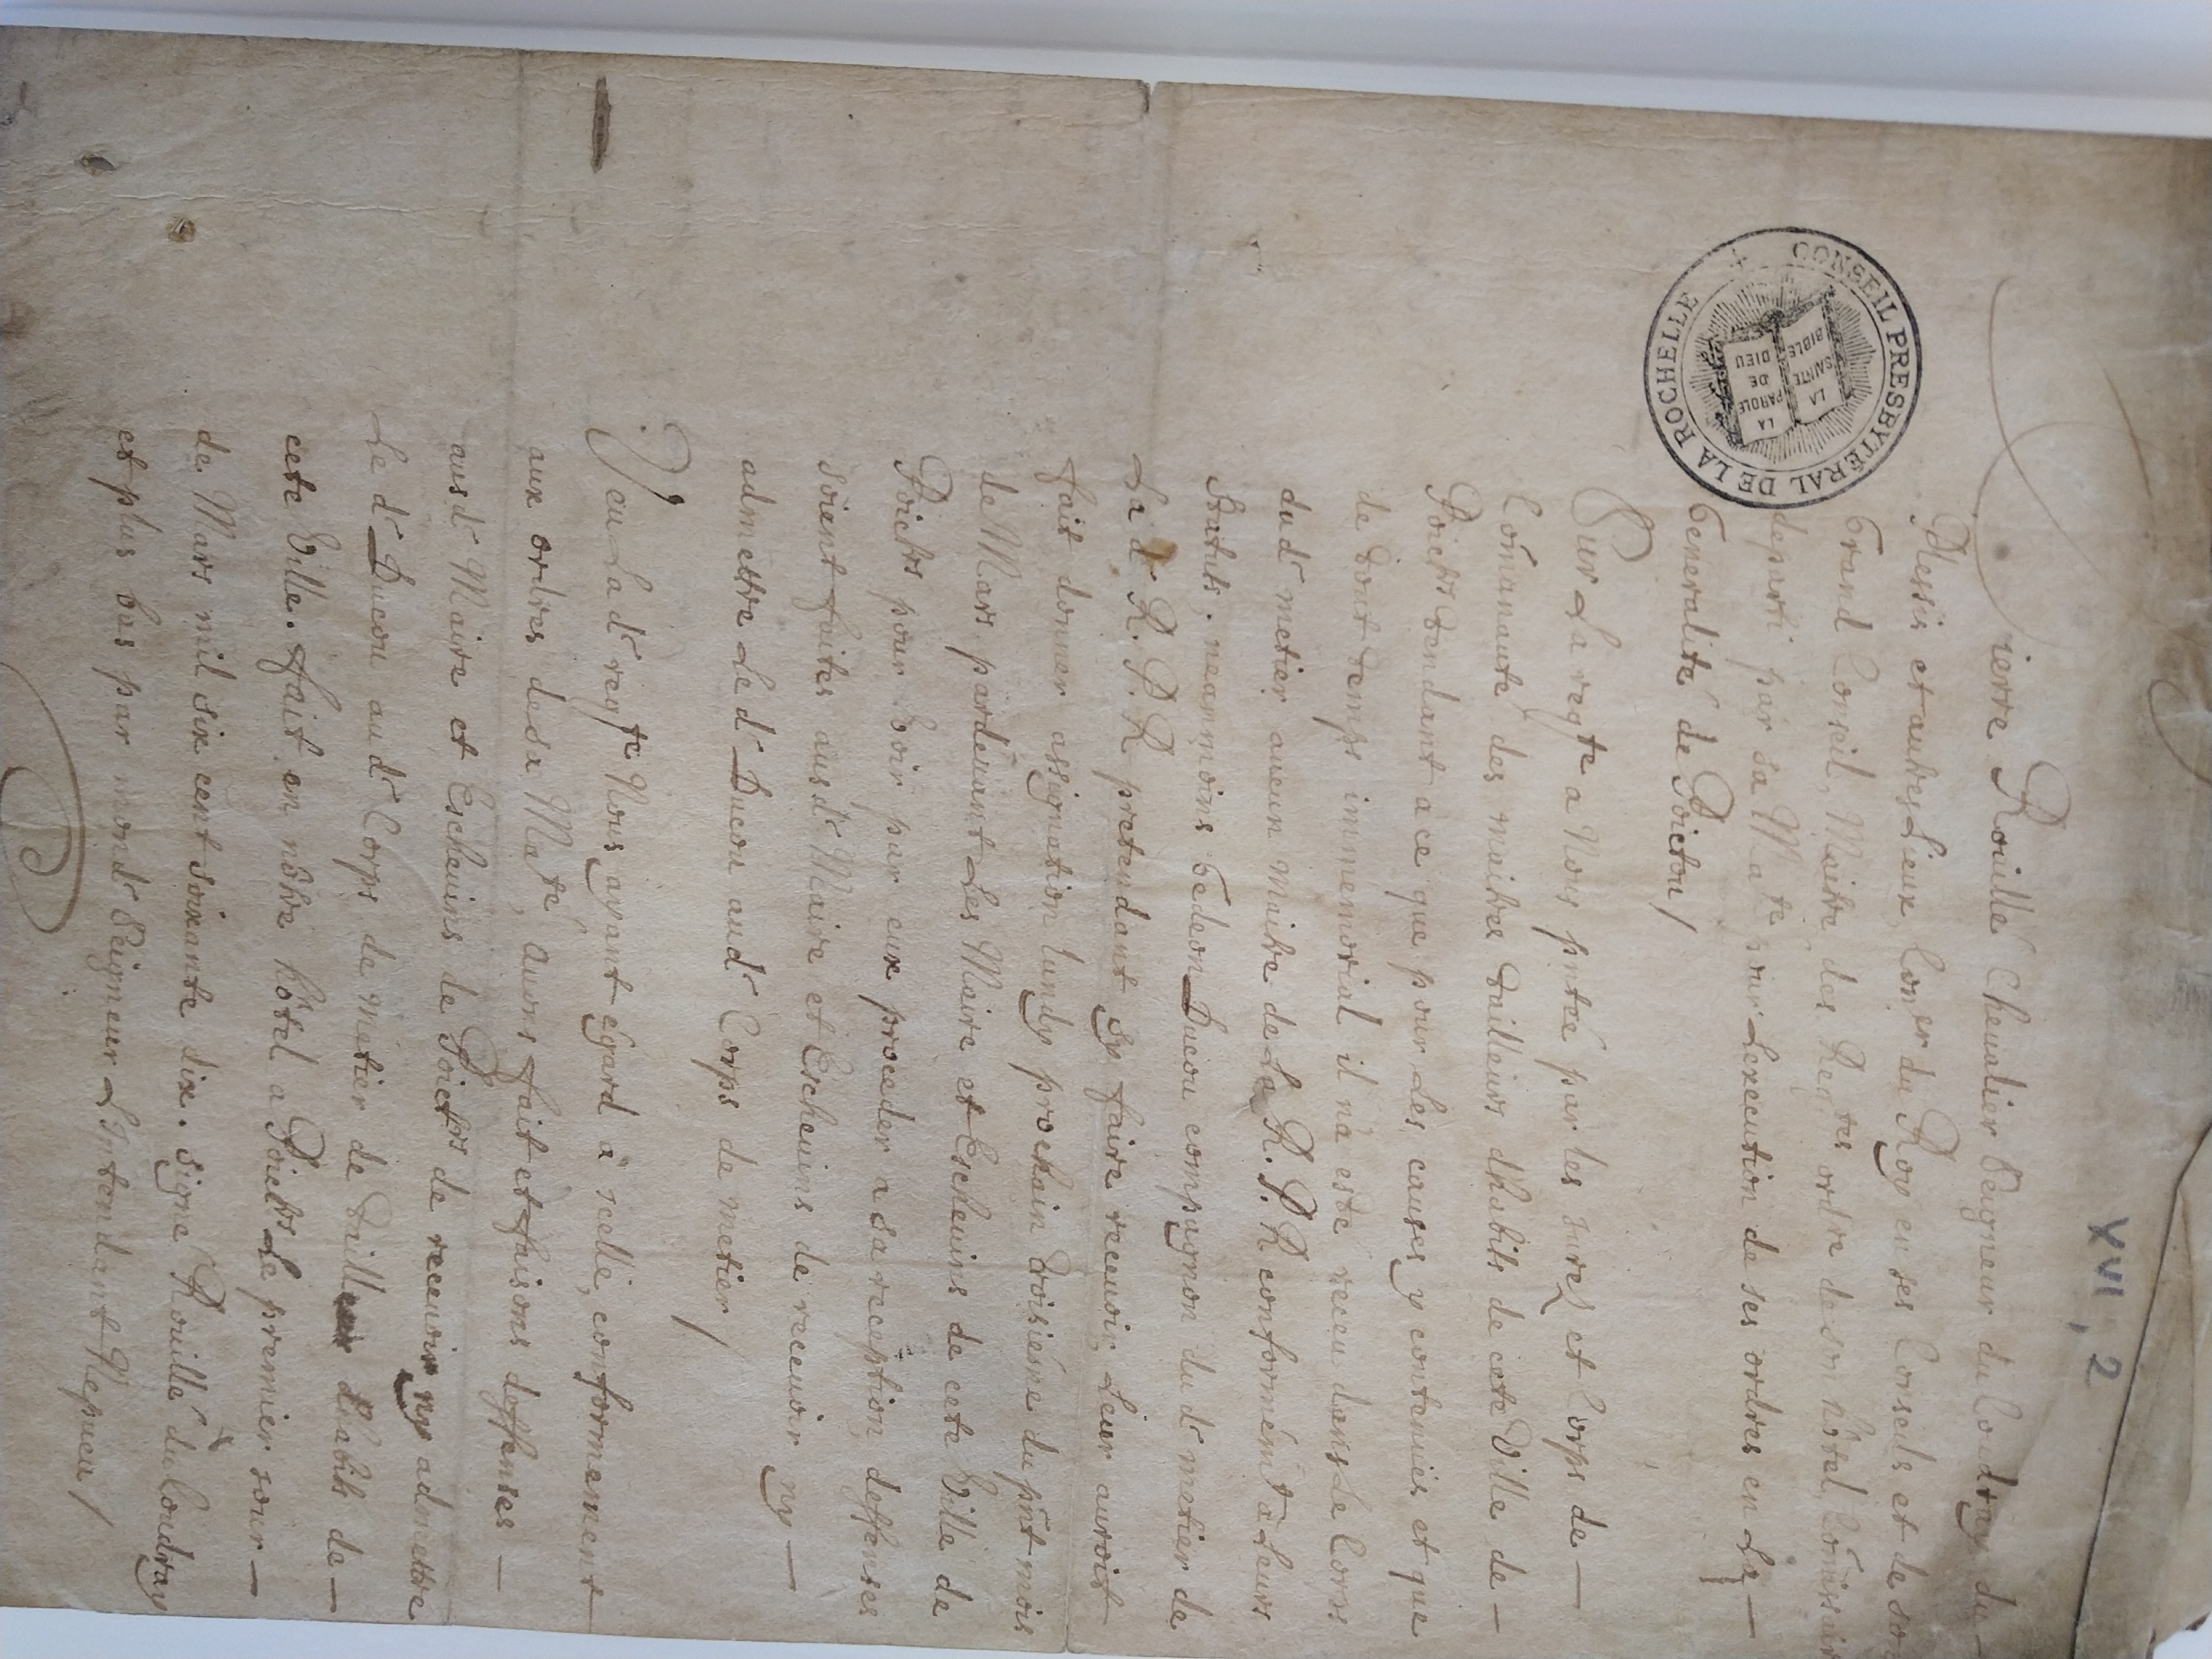 XVI, 2
Pierre Rouillé Chevalier Seigneur du Coudray du -
Plessis et autres Lieux, Con.er du Roy en ses Conseils et de so
Grand Conseil, Maitre des Req.tes ordre de son hôtel, Com̃issair
departi par sa Ma.té pour Lexecution de ses ordres en La —
Generalité de Poictou /
Sur La reqte a Nous pñtée par les Jurez et Corps de —
Com̃unauté des maitres tailleurs dhabits de cete Ville de —
Poictrs tendant a ce que pour Les causes y contenues et que
de tout temps immemorial il na esté receu dans Le Corps
dud' metier aucun Maitre de La R. P. R conformém̃t a Leurs
Statuts, neanmoins Gedeon Ducou compagnon du d' metier de
La d'. R. P. R pretendant sy faire recevoir, Leur auroit
fait donner assignation Lundy prochain troisiésme du pñt mois
de Mars pardevant Les Maire et Eschevins de cete Ville de
Poictrs pour Voir par eux proceder a sa reception, deffenses
soient faites ausd' Maire et Eschevins de recevoir ny —
admettre Le d' Ducou aud' Corps de metier /
Veu La d' reqte Nous ayant Egard a icelle, conformement —
aux ordres de sa Ma.té, avons fait et faisons deffenses —
ausd' Maire et Eschevins de Poictrs de recevoir ny admettre
Le d' Ducou aud' Corps de metier de tailleur dhabits de —
cete Ville. fait en nôtre hôtel a Poictrs Le premier jour —
de Mars mil six cent soixante dix. signé Rouillé du Coudray
et plus bas par mond' Seigneur LIntendant Hepneu /
CONSEIL PRESBYTÉRAL DE LA ROCHELLE
LA SAINTE BIBLE
LA PAROLE DE DIEU